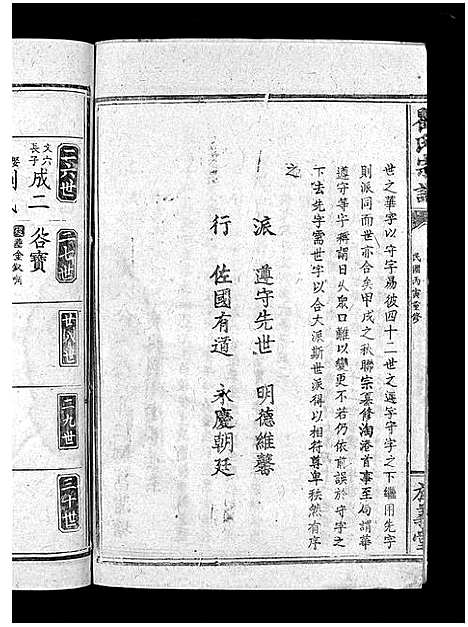 氏宗譜
民國丙寅重修
世之華字以守字易彼四十二世之遵字守字之下繼用先字
則派同而世亦合矣甲戌之秋聯宗纂修淘港首事至局謂華
遵守等字稱謂日久眾口難以變更不若仍依前誤於守字之
下去先字需世字以合大派斯世派得以相符尊卑秩然有序
之
派 遵守先世 明德維馨
行 佐國有道 永慶朝廷
二六世
文六
長子
成二
二七世
谷寶
廿八世
二九世
三十世